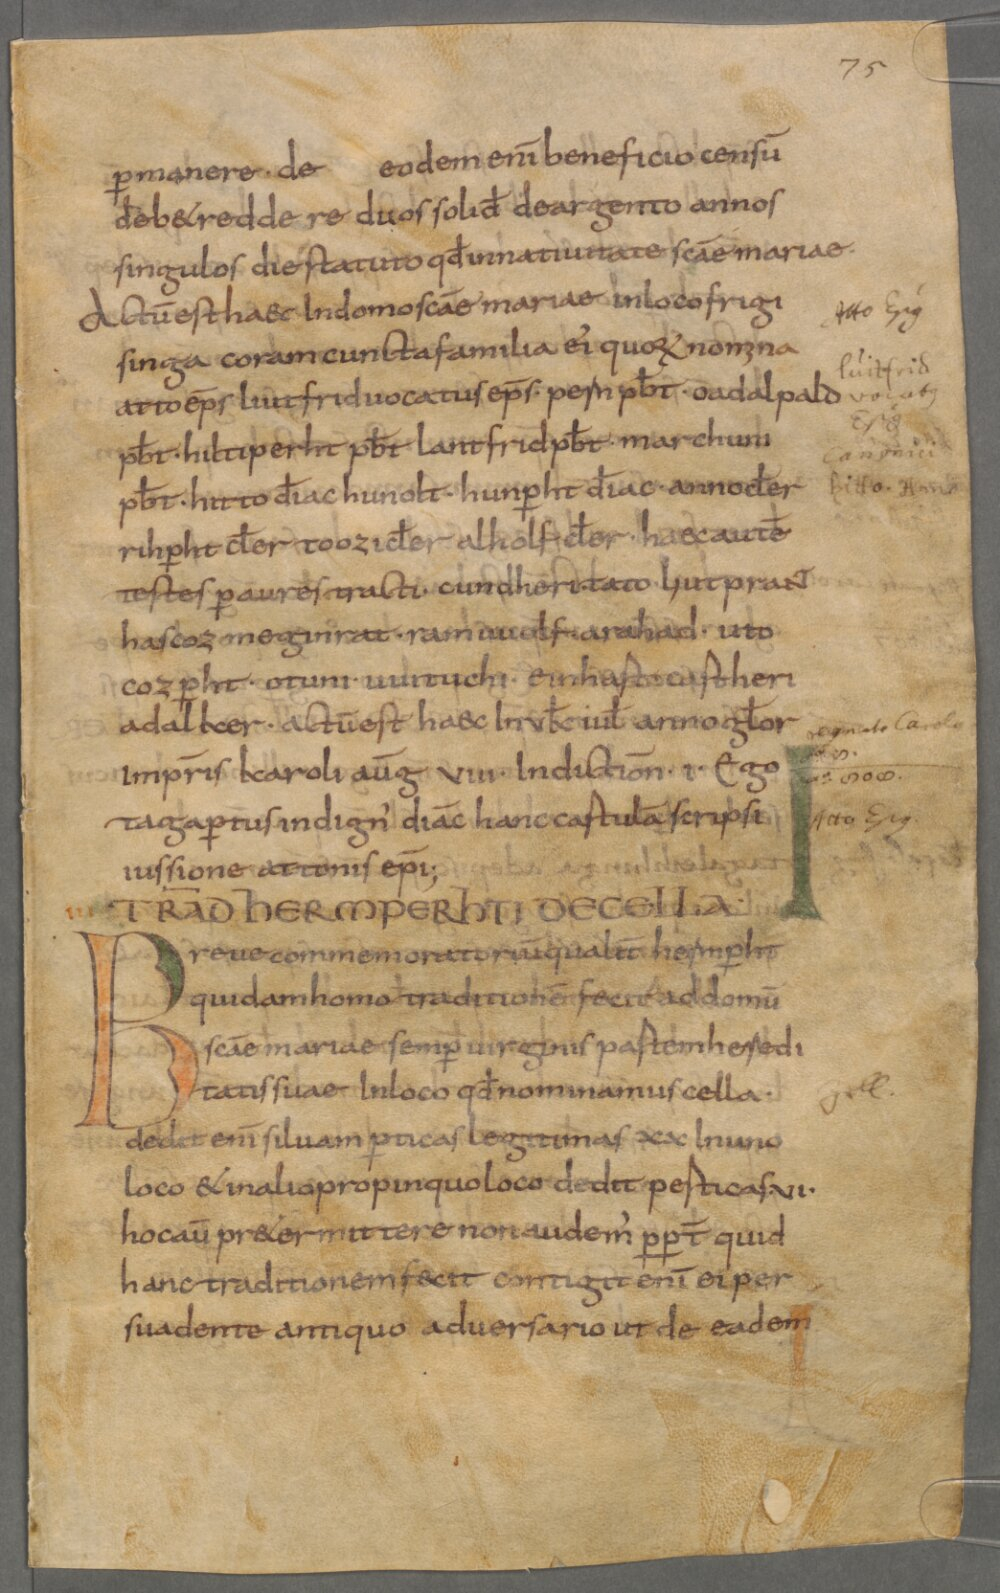 75
p̱manere · de eodem enī beneficio censū
deb& redde re duos solid̄ de argento annos
singulos die statuto qd̄ in natiuitate scāe mariae ·
Actū est haec In domo scāe mariae in loco frigi
singa coram cuncta familia ei' quoꝝ nomina
atto ep̄s luitfrid uocatus ep̄s · pern pb̄t · oadalpald
pb̄t · hiltiperht pb̄t lantfrid pb̄t · marchuni
pb̄t · hitto diac̄ hunolt · hunp̱ht diac̄ · anno cl̄er
rihp̱ht cl̄er toozi cl̄er alholf cl̄er · haec autē
testes p̱ aures tracti · cundheri · tato liutprant
hascoz meginrat · ramuuolf · arahad · uto
cozp̱ht · otuni · uuituchi · einhart castheri
adalker · actū est haec In vi kl̄ iul̄ anno gl̄or
Imp̄ris karoli aūg viii · Indictiōn · i · Ego
tagap̱tus indign' diāc hanc cartulā scripsi
iussione attonis ep̄i;
TRAD̄ HERMPERHTI DE CELLA ·
Breue commemoratoriū qualit̄ hermp̱ht
quidam homo traditionē fecit ad domū
scāe mariae semp̱ uirginis partem heredi
tatis suae In loco qd̄ nominamus cella ·
dedit enī siluam p̱ticas legitimas xx In uno
loco & in alio propinquo loco dedit perticas · vi ·
hoc aūt pr&ermittere non audem' p̱p̱t̄ quid
hanc traditionem fecit contigit enī ei per
suadente antiquo aduersario ut de eadem
Atto Epī
luitfrid
vocatꝰ
Canonici
hitto · Anno
regnate Carolo
Atto Epī